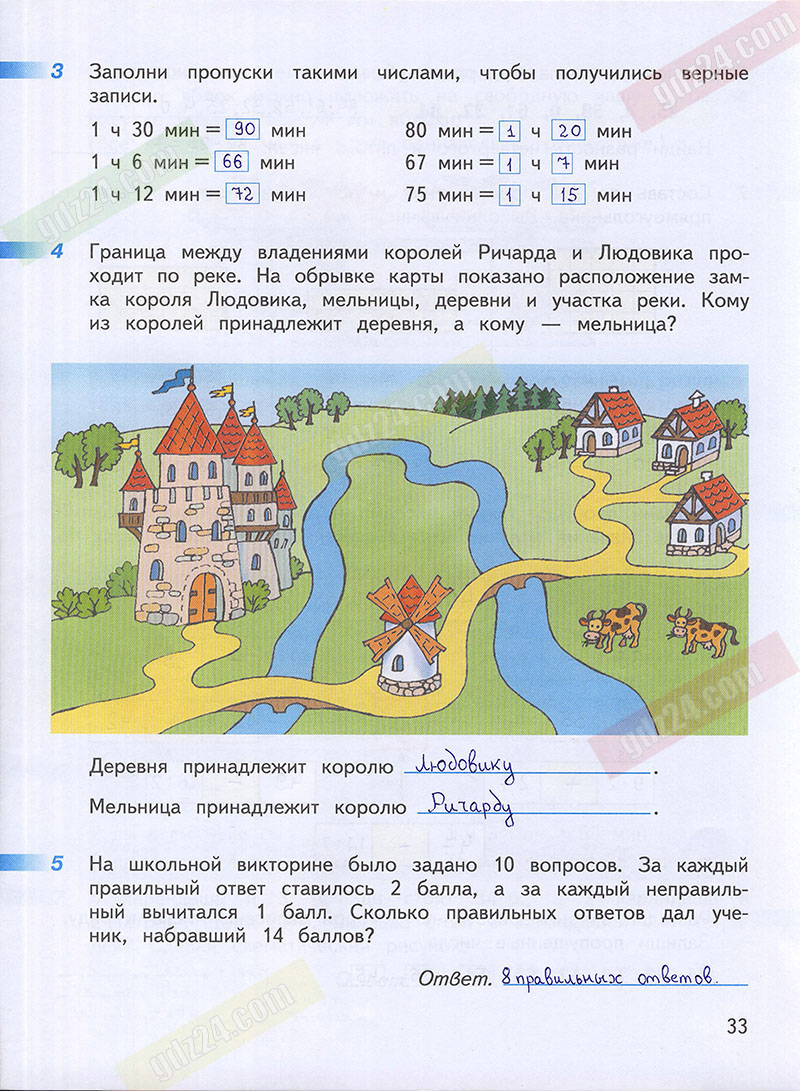 gdz24.com
3 Заполни пропуски такими числами, чтобы получились верные
записи.
1 ч 30 мин = 90 мин
80 мин = 1 ч 20 мин
1 ч 6 мин = 66 мин
67 мин = 1 ч 7 мин
1 ч 12 мин = 72 мин
75 мин = 1 ч 15 мин
gdz24.com
4 Граница между владениями королей Ричарда и Людовика про-
ходит по реке. На обрывке карты показано расположение зам-
ка короля Людовика, мельницы, деревни и участка реки. Кому
из королей принадлежит деревня, а кому — мельница?
gdz24.com
gdz24.com
Деревня принадлежит королю Людовику.
Мельница принадлежит королю Ричарду.
5 На школьной викторине было задано 10 вопросов. За каждый
правильный ответ ставилось 2 балла, а за каждый неправиль-
ный вычитался 1 балл. Сколько правильных ответов дал уче-
ник, набравший 14 баллов?
Ответ. 8 правильных ответов.
gdz24.com
33